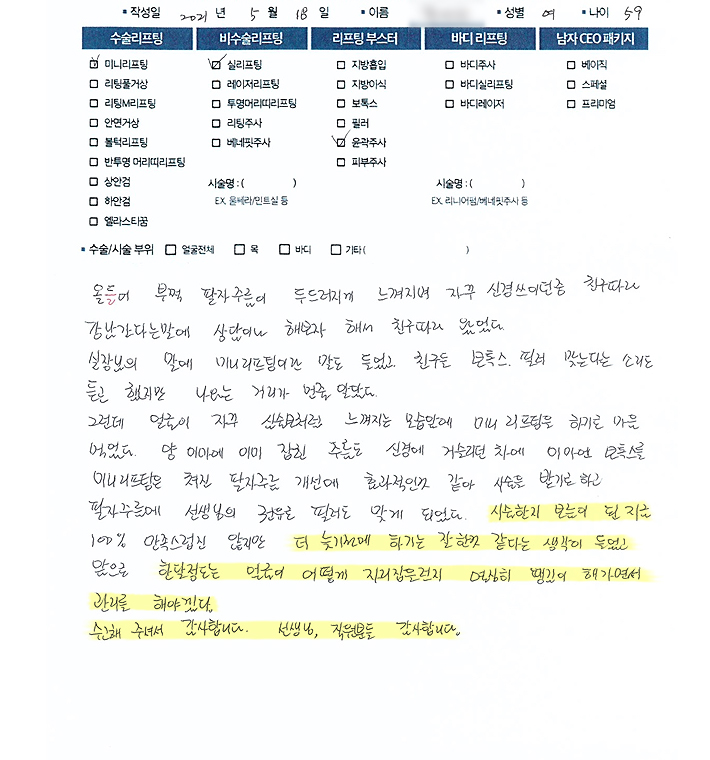 ▪ 작성일 2021 년 5 월 18 일 ▪ 이름 ▪ 성별 여 ▪ 나이 59
수술리프팅 비수술리프팅 리프팅 부스터 바디 리프팅 남자 CEO 패키지
미니리프팅 실리프팅 지방흡입 바디주사 베이직
리팅풀거상 레이저리프팅 지방이식 바디실리프팅 스페셜
리팅M리프팅 투명머리띠리프팅 보톡스 바디레이저 프리미엄
안면거상 리팅주사 필러
볼턱리프팅 베네핏주사 윤곽주사
반투명 머리띠리프팅 피부주사
상안검 시술명 : ( ) 시술명 : ( )
하안검 EX. 울쎄라/민트실 등 EX. 리니어펌/베네핏주사 등
엘라스티꿈
▪ 수술/시술 부위 얼굴전체 목 바디 기타 ( )
올들어 부쩍 팔자주름이 두드러지게 느껴지며 자꾸 신경쓰이던중 친구따라
강남간다는말에 상담이나 해보자 해서 친구따라 왔었다.
실장님의 말에 미니리프팅이란 말도 들었고 친구도 보톡스. 필러 맞는다는 소리도
듣곤 했지만 나와는 거리가 먼줄 알았다.
그런데 얼굴이 자꾸 심술보처럼 느껴지는 모습앞에 미니 리프팅을 하기로 마음
먹었다. 양 이마에 이미 잡힌 주름도 신경에 거슬리던 차에 이마엔 보톡스를
미니리프팅은 쳐진 팔자주름 개선에 효과적인것 같아 시술을 받기로 하고
팔자주름에 선생님의 권유로 필러도 맞게 되었다. 시술한지 보름이 된 지금
100% 만족스럽진 않지만 더 늦기전에 하기는 잘 한것 같다는 생각이 들었고
앞으로 한달정도는 얼굴이 어떻게 자리잡을런지 열심히 땡김이 해가면서
관리를 해야겠다.
수고해 주셔서 감사합니다. 선생님, 직원분들 감사합니다.